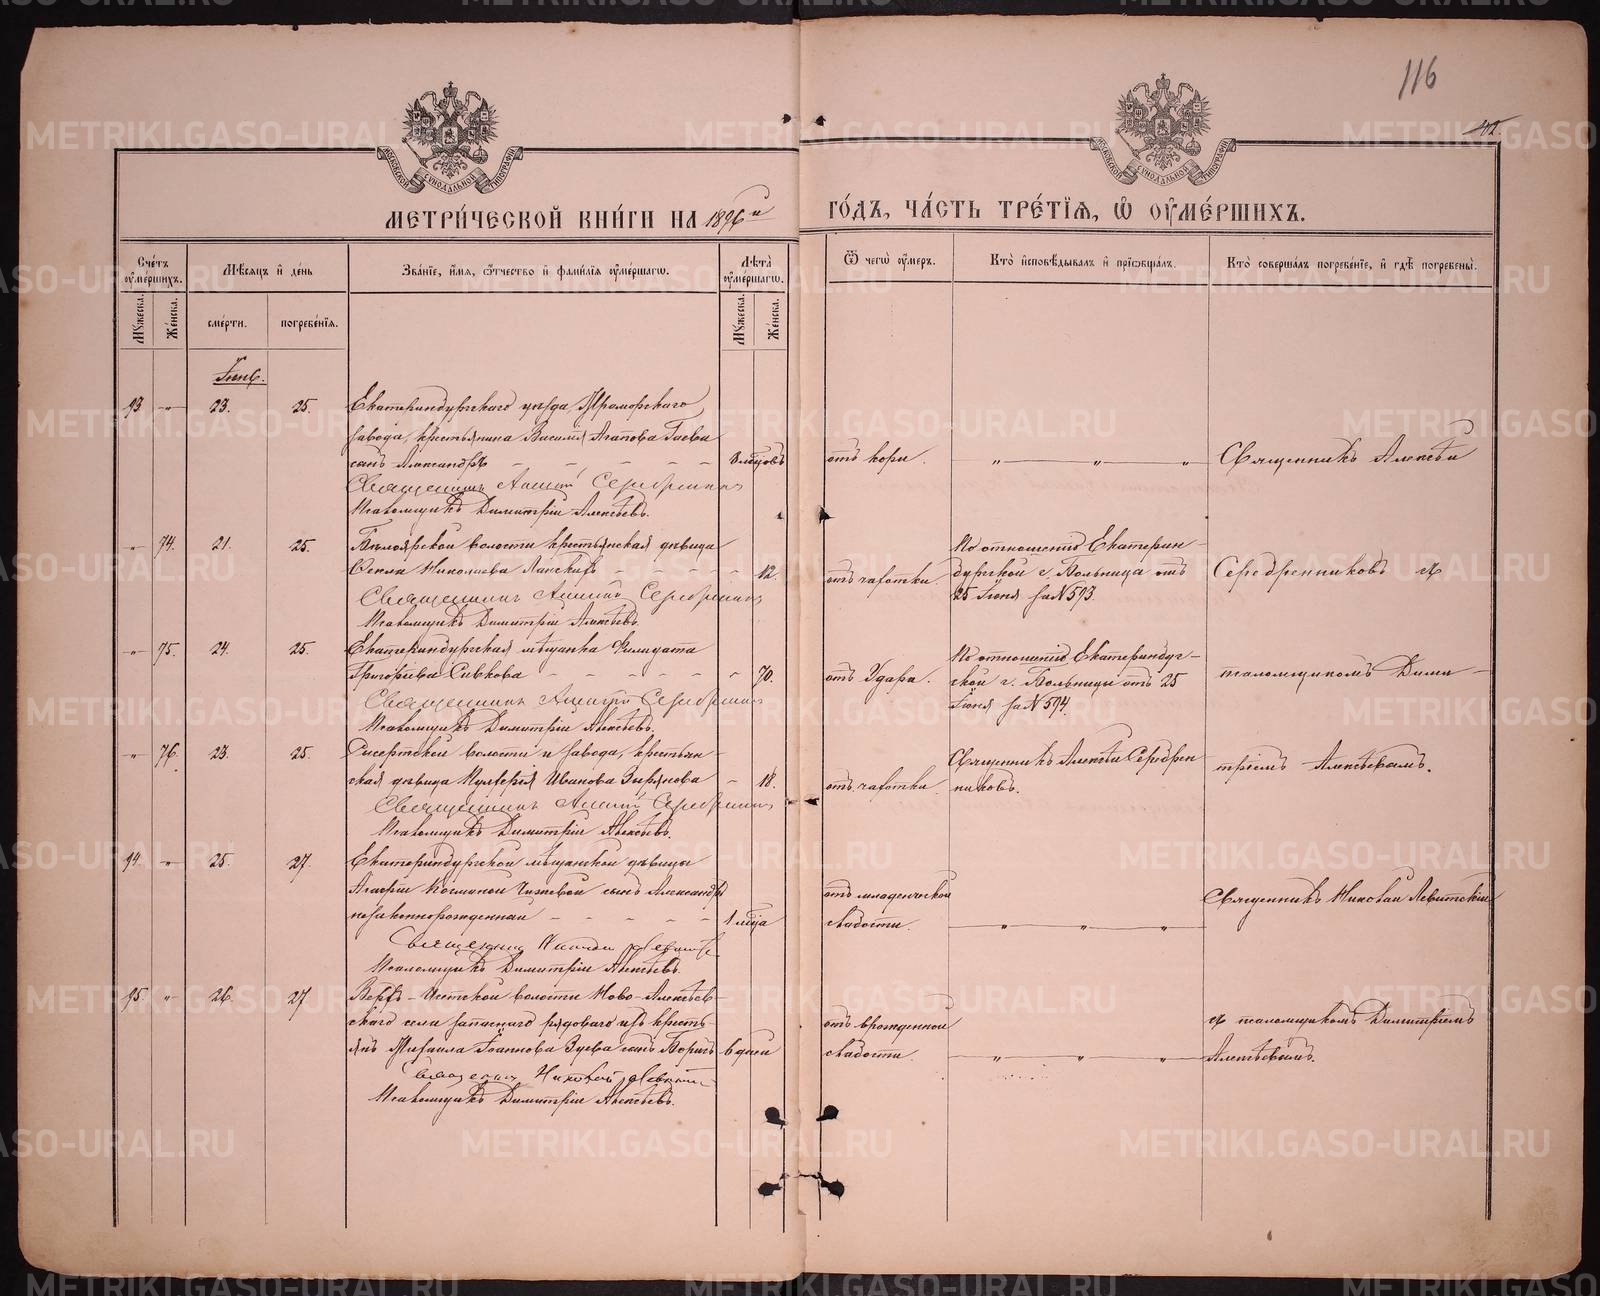 116
42
МЕТРИ́ЧЕСКОЙ КНИ́ГИ НА 1896й ГО́ДЪ, ЧА́СТЬ ТРЕ́ТІѦ, Ѽ ОУМЕ́РШИХЪ.
Сче́тъ оуме́ршихъ.
Мѣ́сѧцъ и де́нь
Зва́ніе, и́мѧ, о́тчество и фами́ліѧ оуме́ршагѡ.
Лѣ́та оуме́ршагѡ.
Ѿ чегѡ̀ оу́меръ.
Кто̀ исповѣ́дывалъ и прїѡбща́лъ.
Кто̀ соверша́лъ погребе́нїе, и гдѣ̀ погребены̀.
Мꙋ́жеска.
Же́нска.
сме́рти.
погребе́нїѧ.
Мꙋ́жеска.
Же́нска.
Іюнь.
93 - 23. 25. Екатеринбургскаго уѣзда, Мраморскаго
завода, крестьянина Василія Агапова Гаева
сынъ Александръ 8 мѣсяцовъ отъ кори. „ „ „ Священникъ Алексѣй
Священникъ Алексій Серебренниковъ
Псаломщикъ Димитрій Алексѣевъ.
„ 74. 21. 25. Бѣлоярской волости крестьянская дѣвица
Николаева 12. отъ чахотки По отношенію Екатерин-
бургской г. Больницы отъ
25 Іюня за N 593. Серебренниковъ съ
Священникъ Алексій Серебренниковъ
Псаломщикъ Димитрій Алексѣевъ.
„ 75. 24. 25. Екатеринбургская мѣщанка
Григорьева Сивкова 70. отъ Удара. По отношенію Екатеринбург-
ской г. Больницы отъ 25
Іюня за N 594. псаломщикомъ Дими-
Священникъ Алексій Серебренниковъ
Псаломщикъ Димитрій Алексѣевъ.
„ 76. 23. 25. Сысертской волости и завода, крестьян-
ская дѣвица Иванова Зырянова 18. отъ чахотки Священникъ Алексѣй Серебрен
никовъ. тріемъ Алексѣевымъ.
Священникъ Алексій Серебренниковъ
Псаломщикъ Димитрій Алексѣевъ.
94. „ 25. 27. Екатеринбургской мѣщанской дѣвицы
Косминой сынъ Александръ
незаконнорожденный 1 мѣсяца отъ младенческой
слабости. „ „ „ Священникъ Николай Левитскій
Священникъ Николай Левитскій
Псаломщикъ Димитрій Алексѣевъ.
95. „ 26. 27. Верхъ-Исетской волости Ново-Алексѣев-
скаго села запаснаго рядоваго изъ кресть-
янъ Михаила Іоаннова Зуева сынъ Борисъ 6 дней отъ врожденной
слабости. „ „ „ съ псаломщикомъ Димитріемъ
Алексѣевымъ.
Священникъ Николай Левитскій
Псаломщикъ Димитрій Алексѣевъ.
METRIKI.GASO-URAL.RU